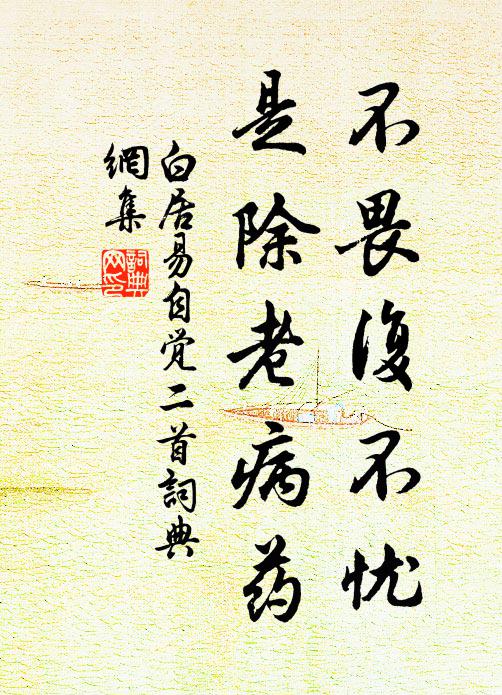 不畏復不忧
是除老病药
白居易自觉二首詞典
網集
詞典
网印